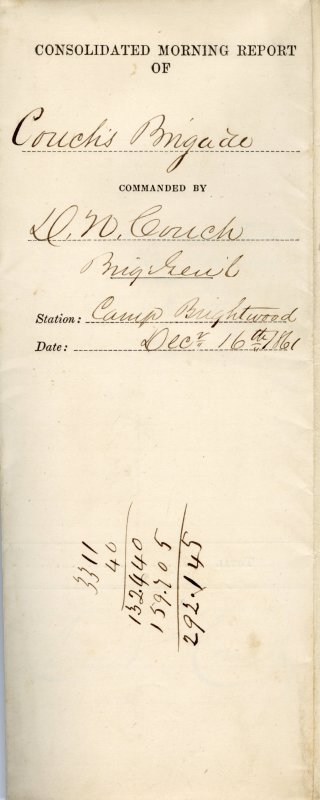 CONSOLIDATED MORNING REPORT
OF
Couch's Brigade
COMMANDED BY
D. N. Couch
Brig. Gen'l
Station: Camp Brightwood
Date: Decr 16th 1861
3311
40
132440
159.705
292.145